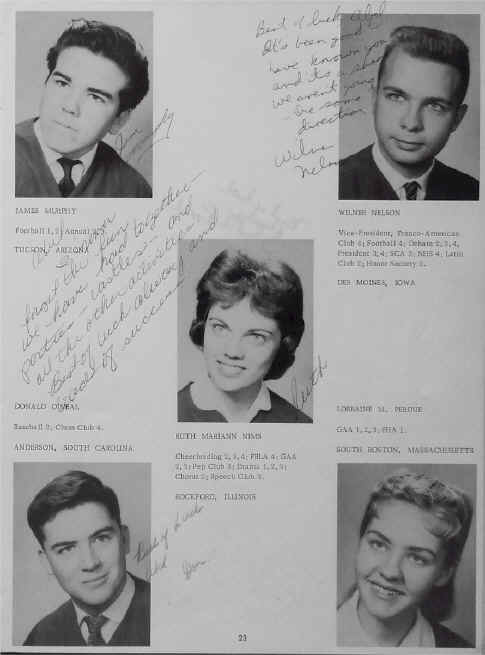 Best of luck Abel
It's been good
have known you
and its a shame
we aren't going
in the same
direction
Wilner
Nelson
Jim Murphy
JAMES MURPHY
Football 1, 2; Annual
TUCSON, ARIZONA
WILNER NELSON
Vice-President, Franco-American
Club 4; Football 4; Debate 2, 3, 4,
President 3, 4; SCA 3; NHS 4; Latin
Club 2; Honor Society 2.
DES MOINES, IOWA
fun
we have had together -
parties - and
all the other activities
Best of luck always and
loads of success
Ruth
DONALD O'NEAL
Baseball 2; Chess Club 4.
ANDERSON, SOUTH CAROLINA
RUTH MARIANN NIMS
Cheerleading 2, 3, 4; FBLA 4; GAA
2, 3; Pep Club 3; Drama 1, 2, 3;
Chorus 2; Speech Club 3.
ROCKFORD, ILLINOIS
LORRAINE M. PERDUE
GAA 1, 2, 3; FHA 1.
SOUTH BOSTON, MASSACHUSETTS
Best of Luck
Don
23